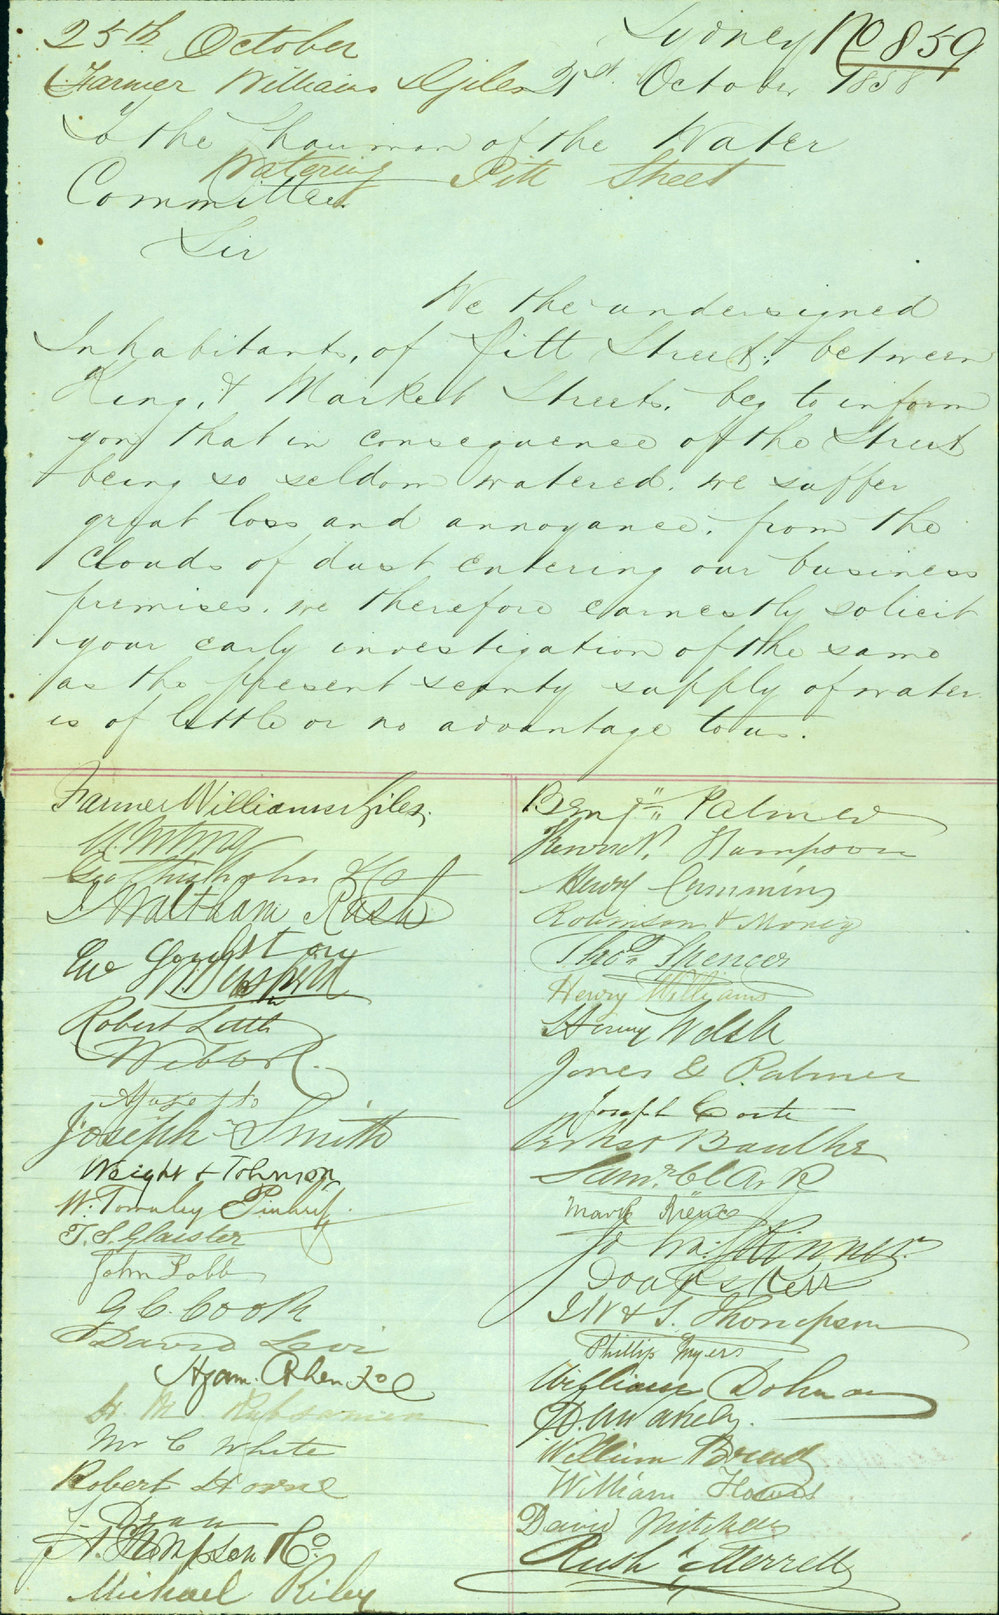 25th October
Sydney No 859
Farmer Williams & Giles 21st October 1858
To the Chairman of the Water
Watering Pitt Street
Committee
Sir
We the undersigned
Inhabitants, of Pitt Street, between
King, & Market Streets. beg to inform
you that in consequence of the Street
being so seldom watered. we suffer
great loss and annoyance. from the
Clouds of dust entering our business
premises. we therefore earnestly solicit
your early investigation of the same
as the present scanty supply of water
is of little or no advantage to us.
Farmer Williams & Giles
Geo Chisholm & Co
J Waltham Rash
Robert Little
Joseph Smith
Wright & Johnson
W. Townley Pinhey
T. S. Glaister
John Tobb
G. C. Cook
David Levi
Hyam
H M Rubsamen
Mr C White
Robert Horne
J. Dean
A. Thompson & Co
Michael Riley
Benjn Palmer
Hampson
Henry Cummins
Robinson & Money
Thos Spencer
Henry Williams
Henry Welsh
Jones & Palmer
Joseph
Ernst Bauthe
Saml Clark
Mark
Skinner
Kerr
J W & S. Thompson
Phillip Myers
William Dolman
William
William
David Mitchell
Rush & Merrell